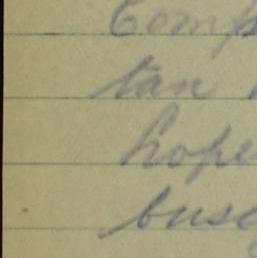 Comp
tan
hope
busc